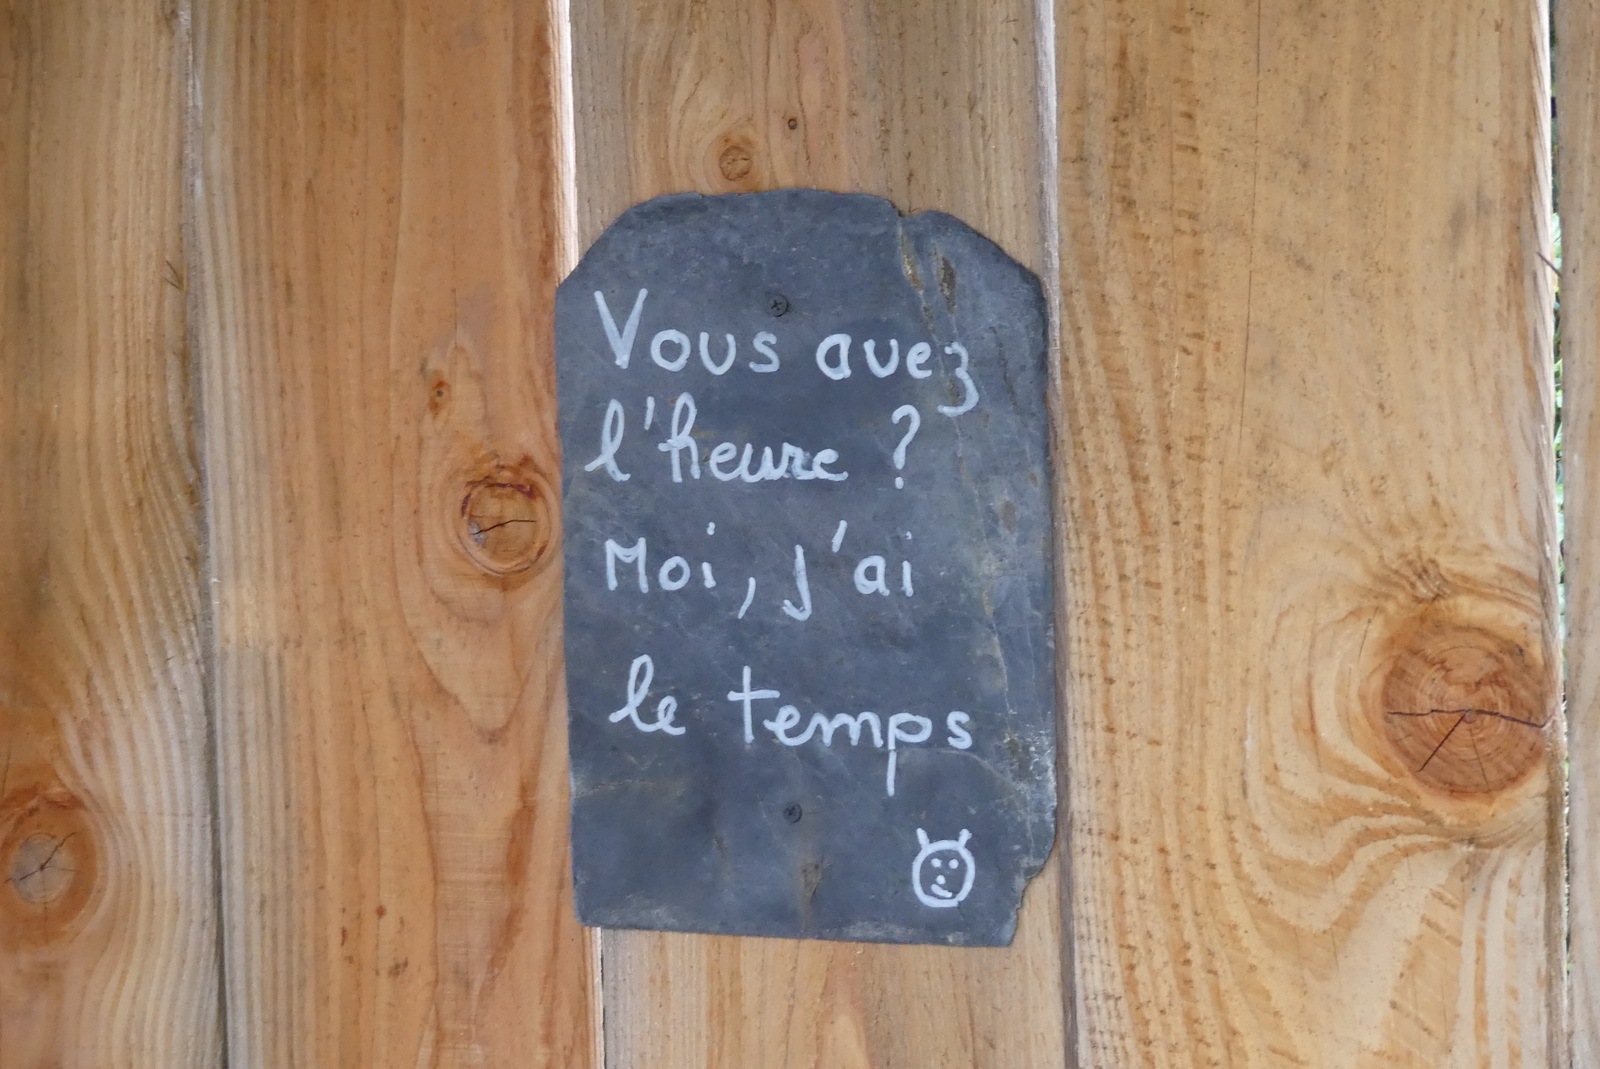 Vous avez
l'heure ?
Moi, j'ai
le temps